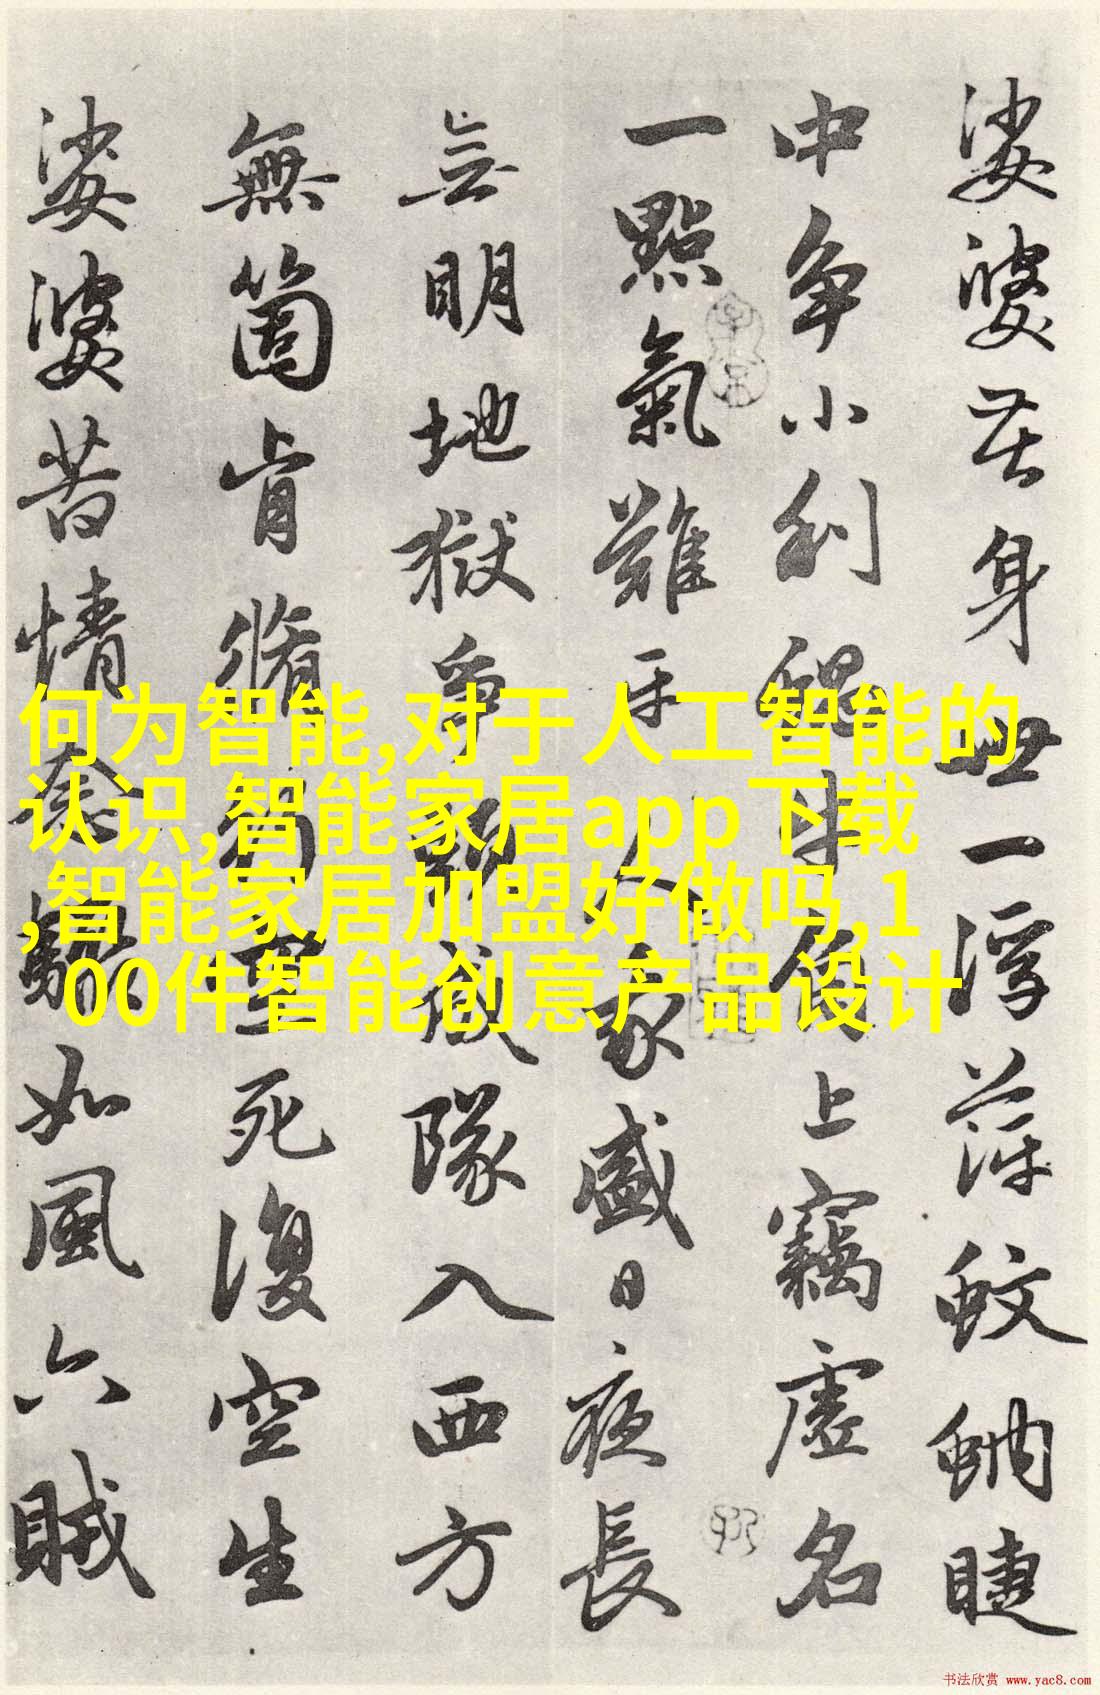 娑婆苦身世一浮萍蚊蚋睫
中争小利蝸牛角上竊虛名
一點氣難平人我盛日夜長
无明地獄爭頭成隊入西方
無箇肯脩行空死復空生
娑婆苦情念驟如風六賊
何为智能,对于人工智能的
认识,智能家居app下载
,智能家居加盟好做吗,1
00件智能创意产品设计
书法欣赏 www.yac8.com